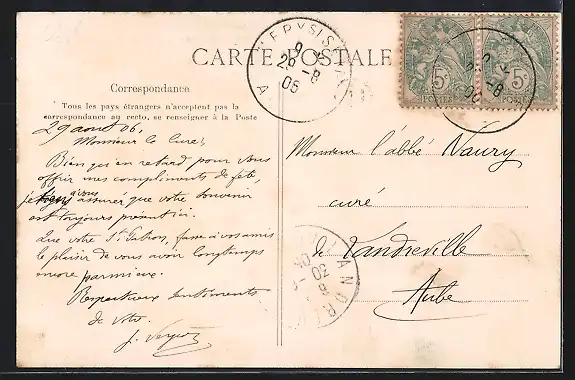 CARTE POSTALE
Correspondance
Tous les pays étrangers n'acceptent pas la
correspondance au recto, se renseigner à la Poste
29 aout 06,
Monsieur le Curé,
Bien qu'en retard pour vous
offrir mes compliments de fête,
je tiens à vous assurer que votre souvenir
est toujours présent ici.
Que votre St Patron, fasse à vos amis
le plaisir de vous avoir longtemps
encore parmi eux.
Respectueux sentiments
de votre
Monsieur l'abbé Naury
curé
de Vandreville
Aube
29 -8
06
5c
5c